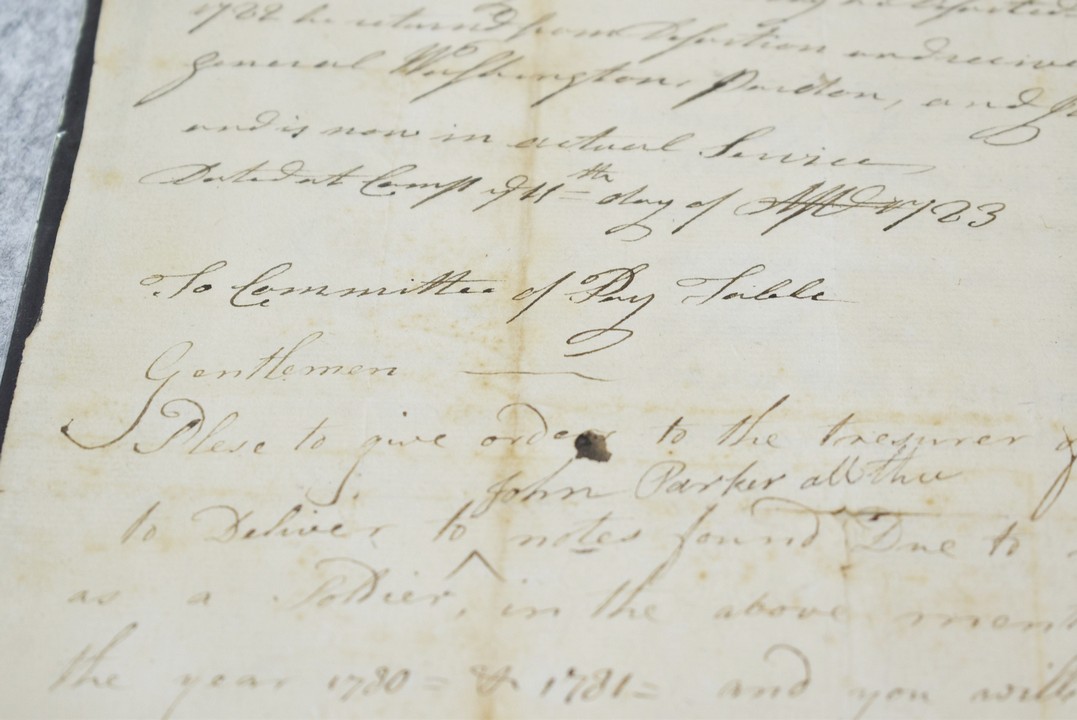 1782 he returnd from Desartion and receive
General Washingtons Pardon, and
and is now in actual Service
Dated at Camp ye 11th day of 1783
To Committee of Pay Table
Gentlemen
Plese to give orders to the tresurer
John Parker all the
to Deliver to ^ notes found Due to
as a Soldier, in the above ment
the year 1780 = & 1781 = and you will